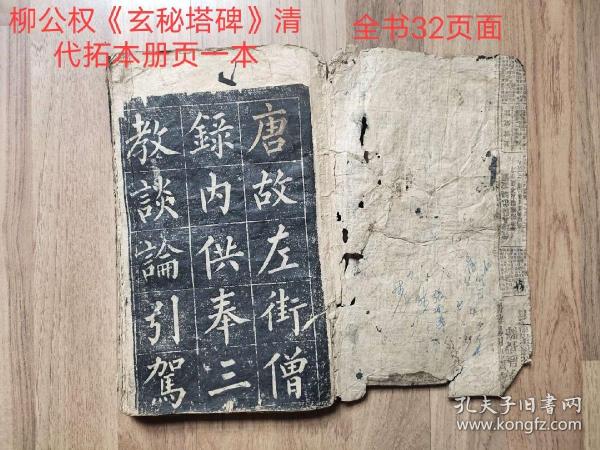 柳公权《玄秘塔碑》清
代拓本册页一本
全书32页面
唐故左街僧
録内供奉三
教談論引駕
孔夫子旧书网
www.kongfz.com